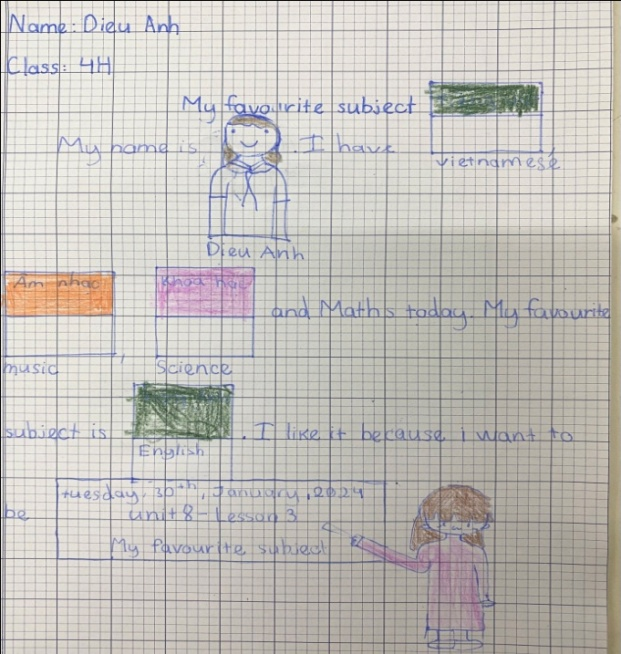 Name: Dieu Anh
Class: 4H
My favourite subject
My name is, . I have
vietnamese,
Dieu Anh
Âm nhạc
Khoa học
and Maths today. My favourite
music ,
Science
subject is . I like it because i want to
English
be
tuesday, 30th, January, 2024
unit 8 - Lesson 3
My favourite subject